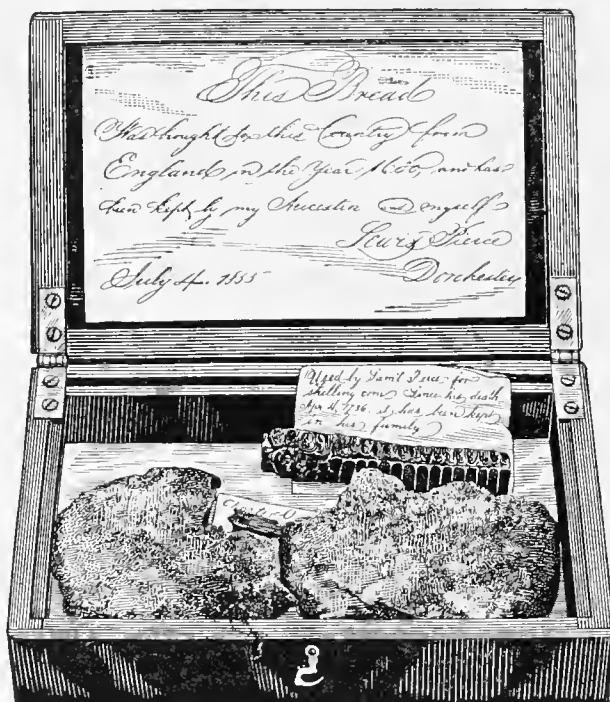 This Bread
Was brought to this Country from
England in the Year 1600, and has
been kept by my Ancestors and myself
Lewis Pierce
July 4. 1855 Dorchester
Used by Sam'l Pierce for
shelling corn Since his death
Apr. 1736. it has been kept
in his family